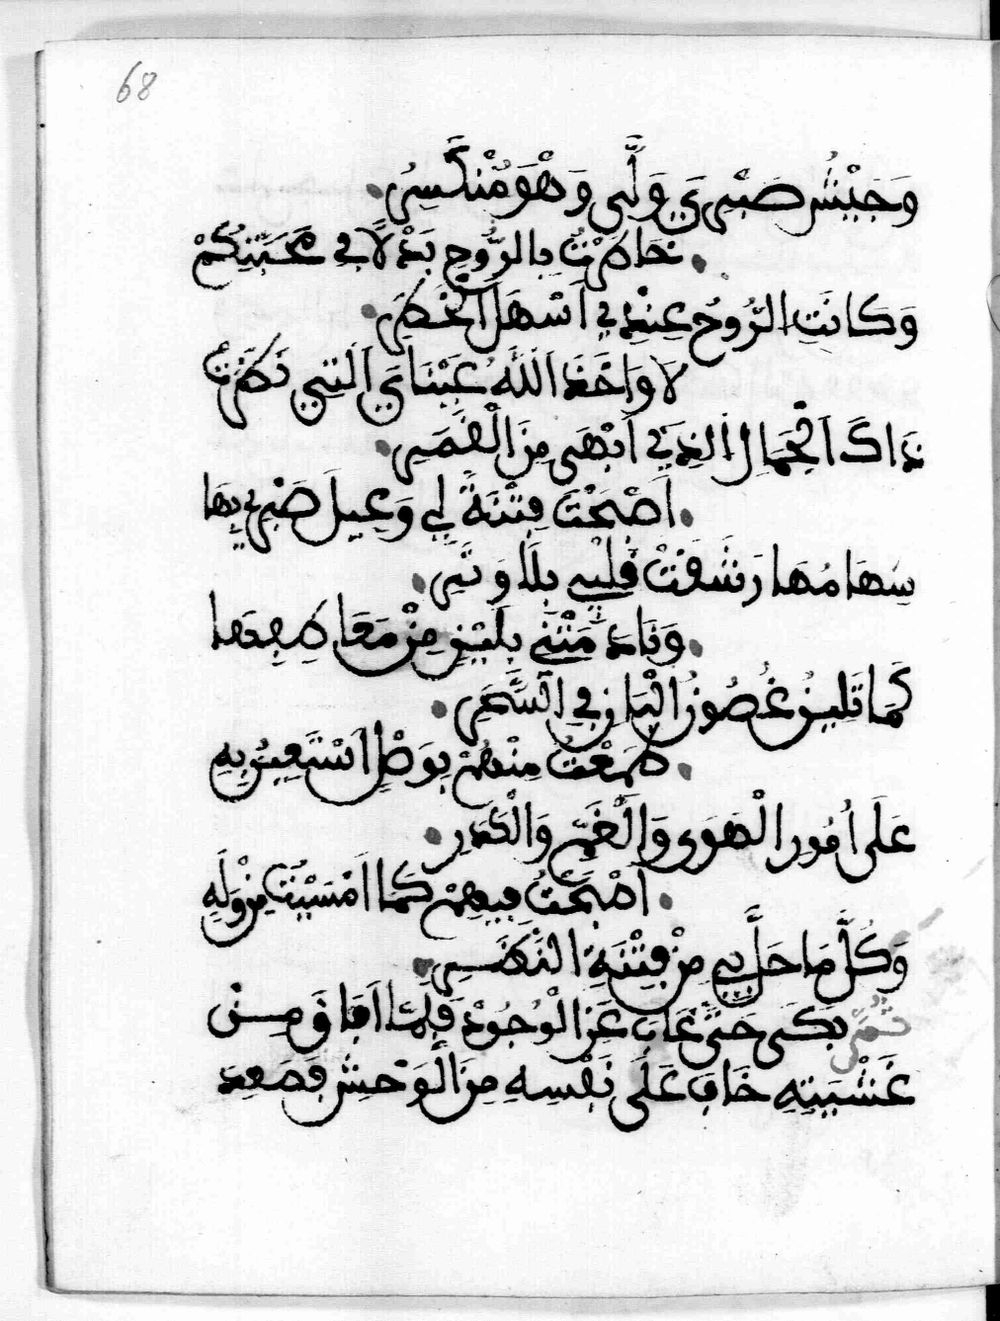 68
وَجَيْشُ صَبْرِي وَلَّى وَهْوَ مُنْكَسِرُ
خَاطَرْتُ بِالرُّوحِ بَدْلًا فِي مَحَبَّتِكُمْ
وَكَانَتِ الرُّوحُ عِنْدِي أَسْهَلَ الْخَطَرِ
لَا وَاخَذَ اللَّهُ عَيْنَايَ الَّتِي نَظَرَتْ
ذَاكَ الْجَمَالَ الَّذِي أَبْهَى مِنَ الْقَمَرِ
أَصْبَحْتْ فِتْنَةً لِي وَعِيلَ صَبْرِي بِهَا
سِهَامُهَا رَشَقَتْ قَلْبِي بِلَا وَتَرِ
وَنَادَمَتْنِي بِلَيْنٍ مِنْ مَعَاطِفِهَا
كَمَا تَلِينُ غُصُونُ الْبَانِ فِي السَّحَرِ
طَمِعْتُ مِنْهُمْ بِوَصْلٍ أَسْتَعِينُ بِهِ
عَلَى أُمُورِ الْهَوَى وَالْغَمِّ وَالْكَدَرِ
أَصْبَحْتُ فِيهِمْ كَمَا أَمْسَيْتُ مِنْ وَلَهِ
وَكُلُّ مَا حَلَّ بِي مِنْ فِتْنَةِ النَّظَرِ
ثُمَّ بَكَى حَتَّى غَابَ عَنِ الْوُجُودِ فَلَمَّا أَفَاقَ مِنْ
غَشْيَتِهِ خَافَ عَلَى نَفْسِهِ مِنَ الْوَحْشِ فَصَعِدَ